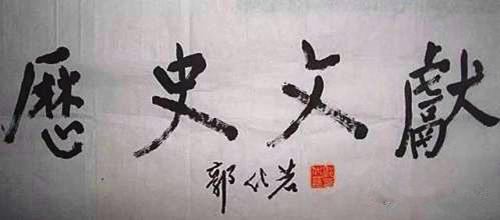 歷史文獻
郭化若